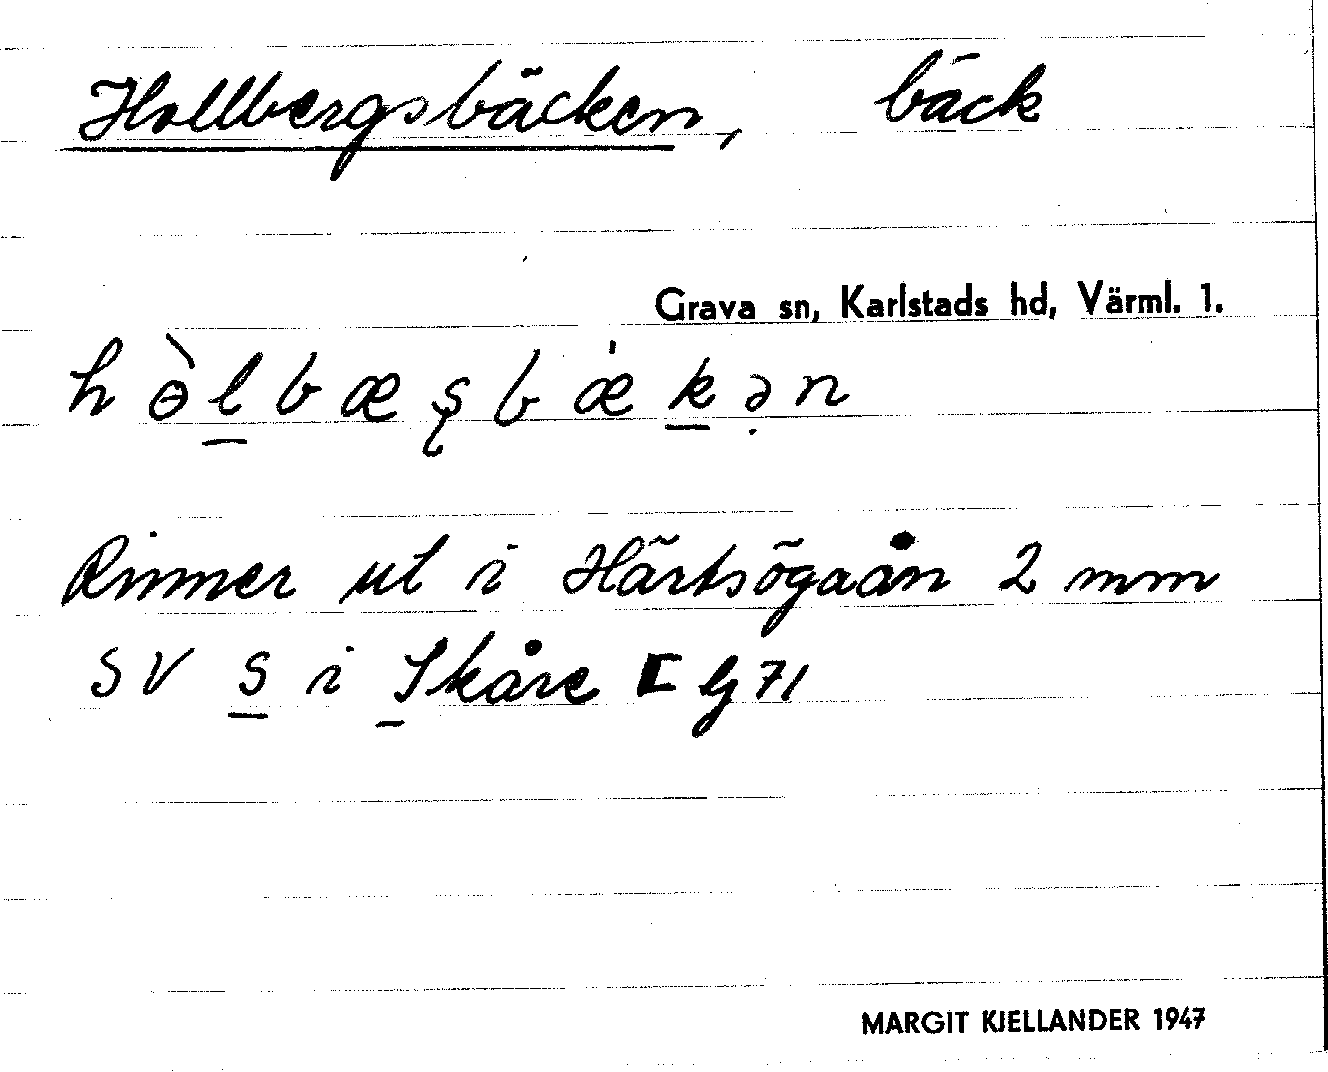 Hollbergsbäcken, bäck
Grava sn, Karlstads hd, Värml. 1.
hɵ̀lbæʂbækə̣n
Rinner ut i Härtsögaån 2 mm
SV S i Skåre [Lj 71
MARGIT KJELLANDER 1947